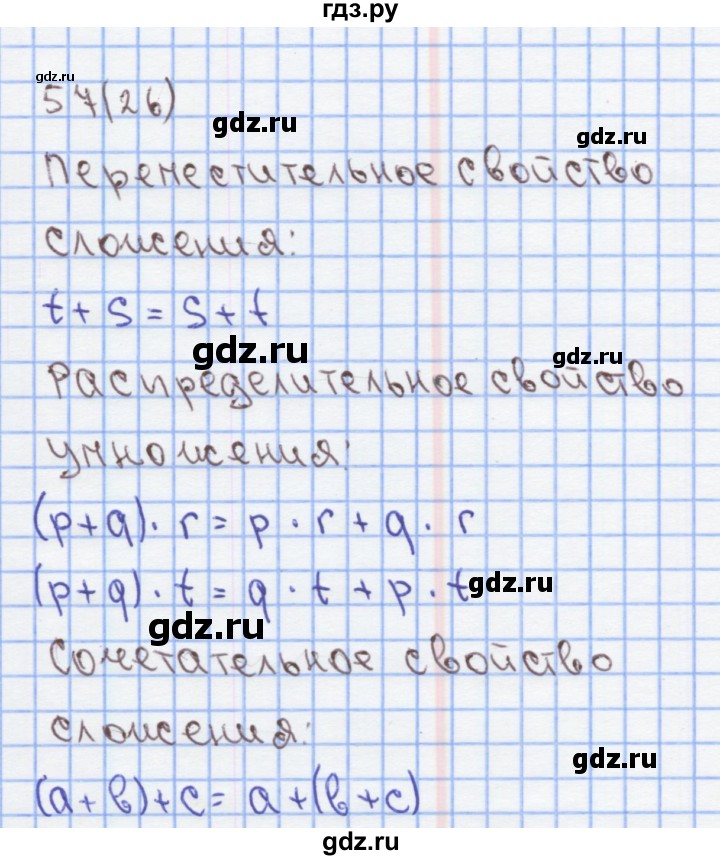 гдз.ру
gdz.ru
57(26)
gdz.ru
gdz.ru
Переместительное свойство
сложения:
t + s = s + t
gdz.ru
gdz.ru
Распределительное свойство
умножения:
(p + q) · r = p · r + q · r
(p + q) · t = q · t + p · t
gdz.ru
gdz.ru
Сочетательное свойство
сложения:
gdz.ru
(a + b) + c = a + (b + c)
gdz.ru